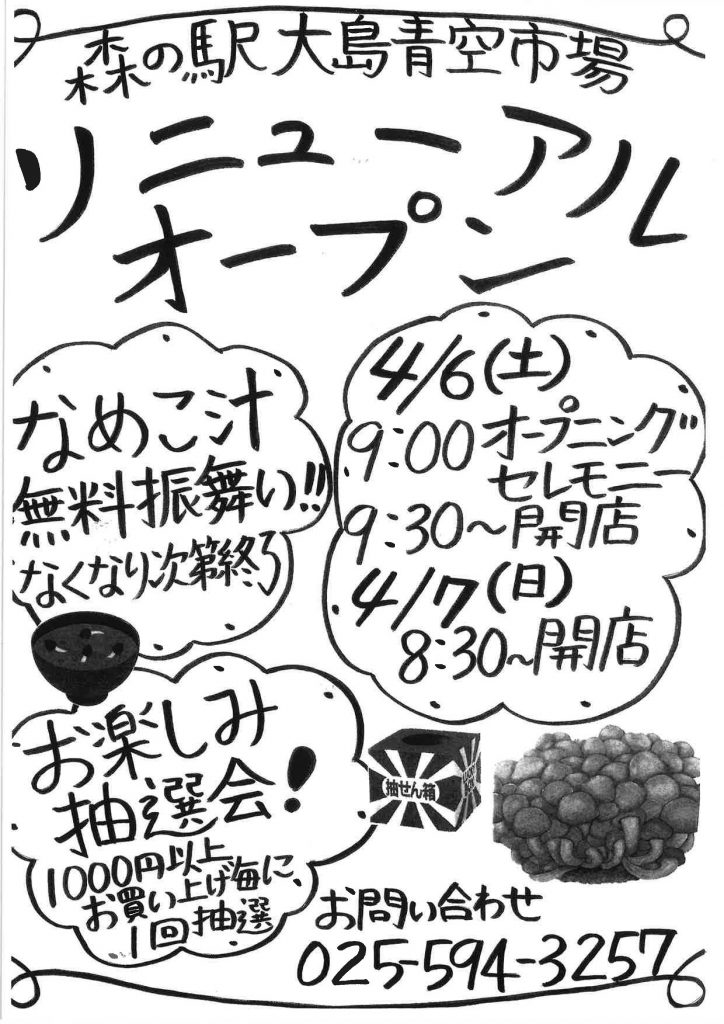 森の駅 大島青空市場
リニューアル
オープン
なめこ汁
無料振舞い!!
なくなり次第終了
4/6(土)
9:00 オープニング
セレモニー
9:30~開店
4/7(日)
8:30~開店
お楽しみ
抽選会!
1000円以上
お買い上げ毎に、
1回抽選
抽せん箱
お問い合わせ
025-594-3257